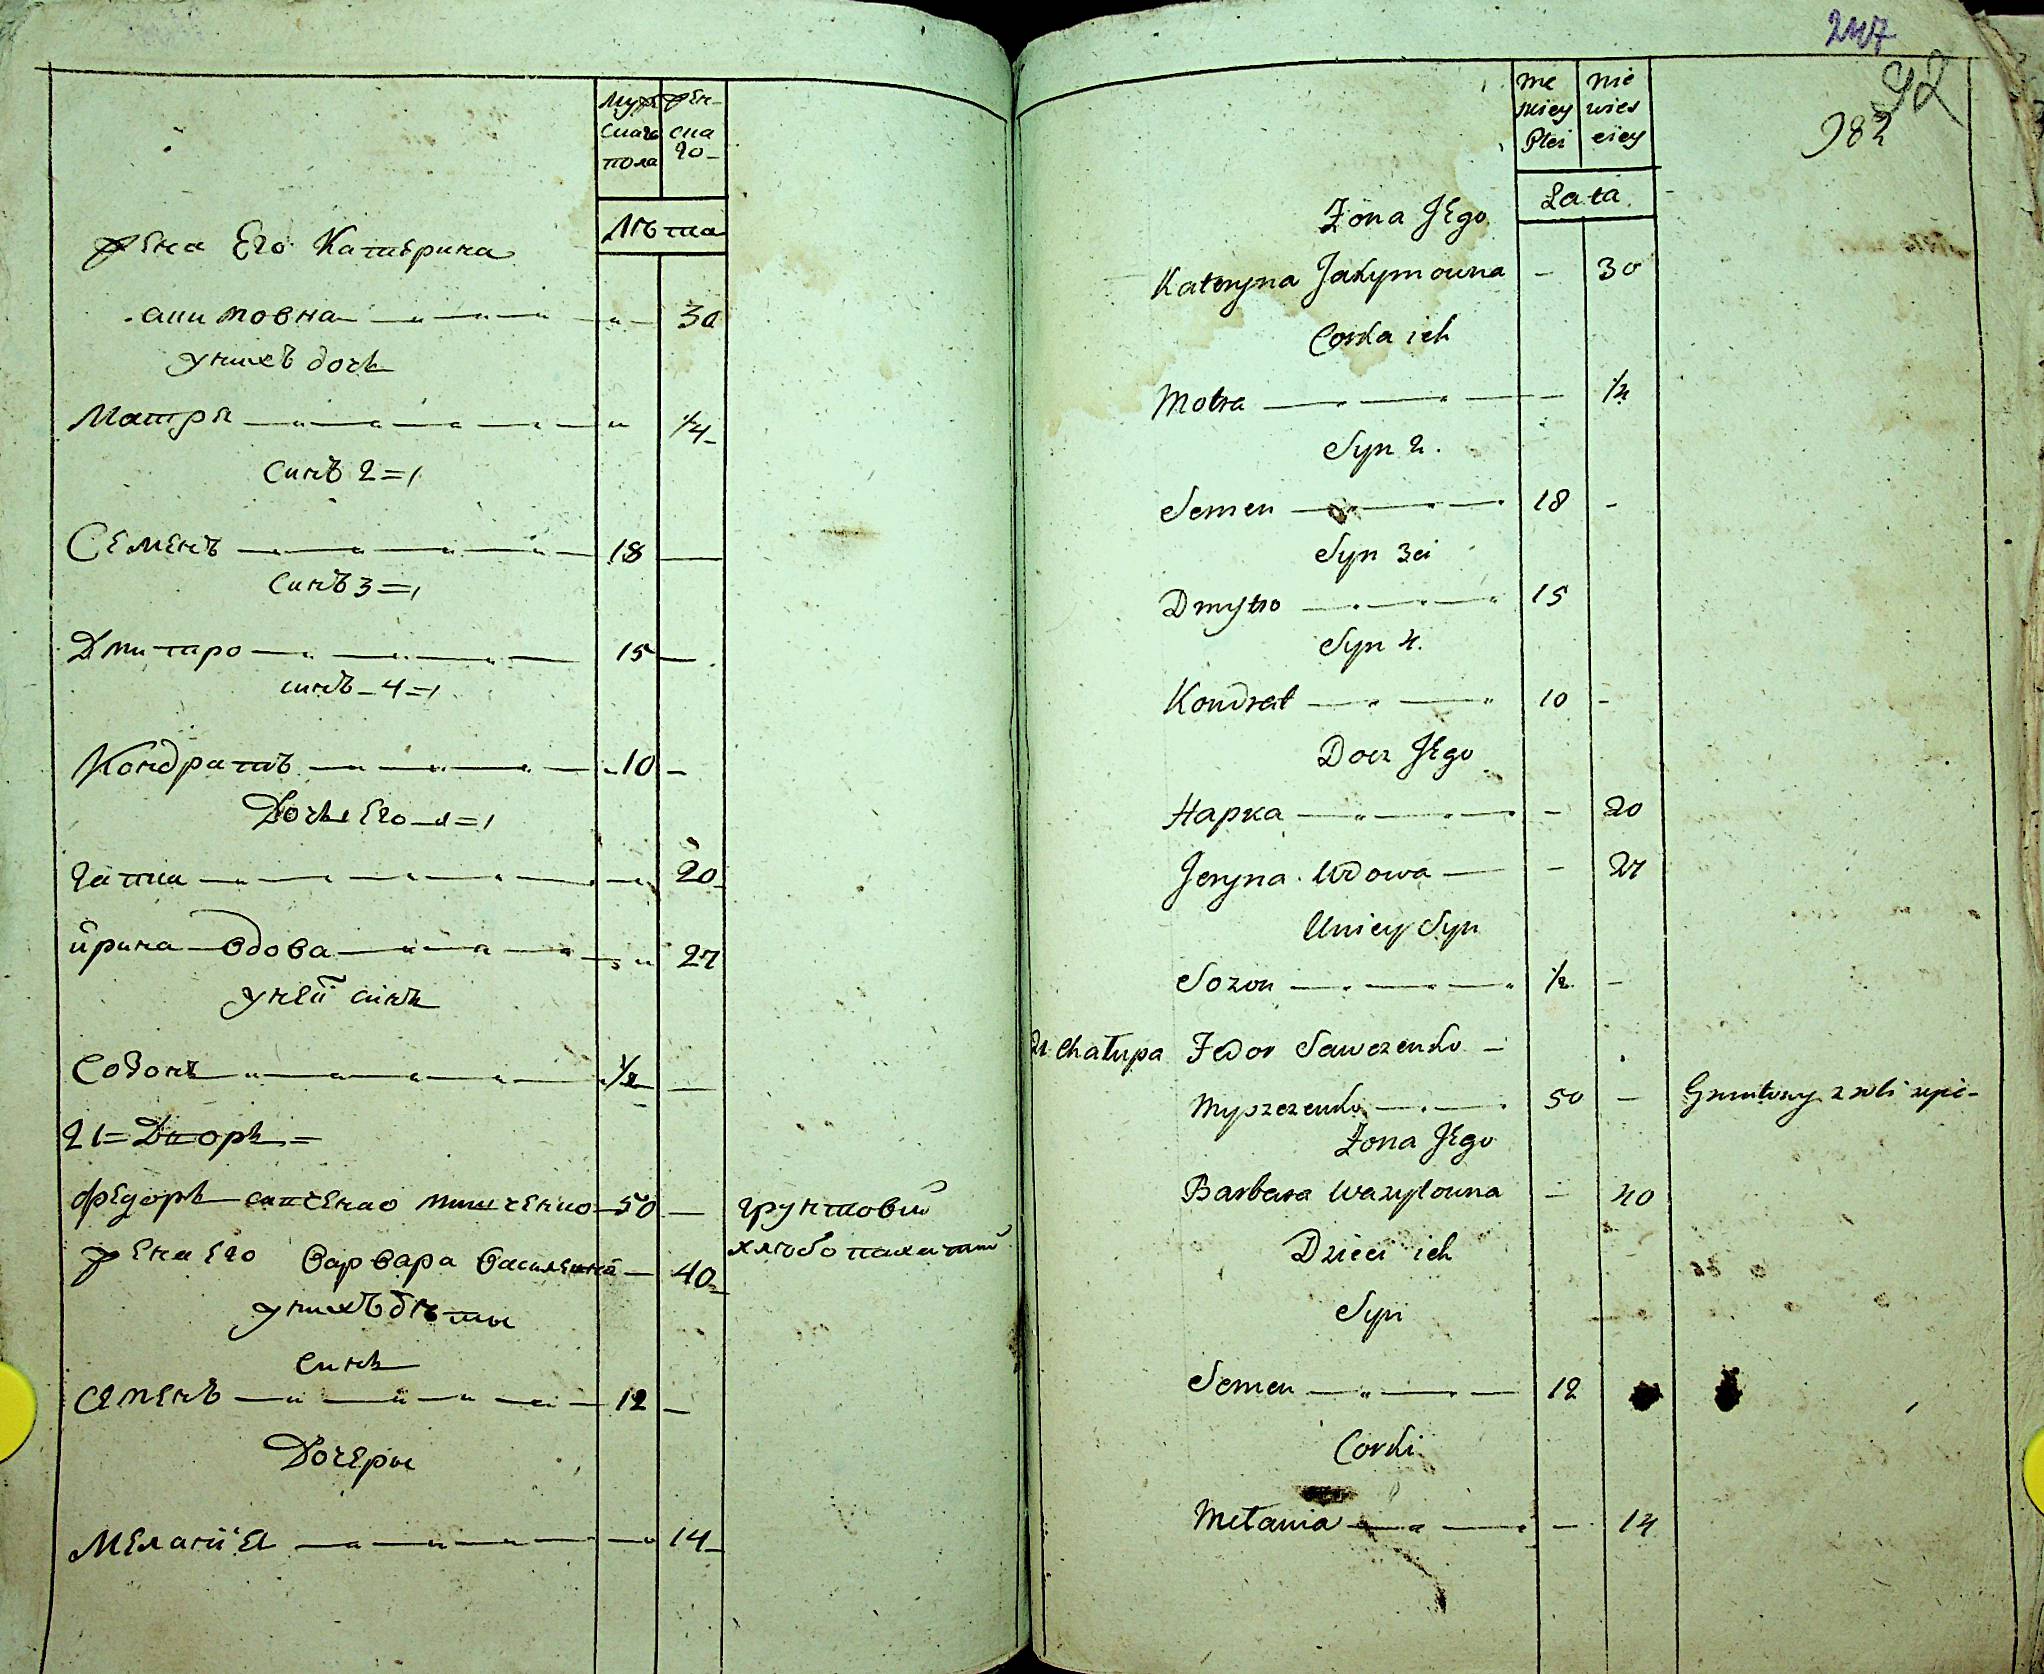 Муж
ског
пола
жен-
ска
го-
Лѣта
жена Его Катерина
акимовна 30
унихъ дочь
Матра ¼
Синъ 2=й
Семенъ 18
Синъ 3=й
Дмитро 15
синъ 4=й
Кондратъ 10
Дочь Его
гапка 20
йрина вдова 27
унеи синъ
Созонъ ½
21= Дворъ =
Федоръ савченко 50 грунтовий
жена Его Варвара 40 хлѣбопахатній
унихъ дѣты
синъ
Семенъ 12
Дочеры
Мелания 14
247
92
Me
skiey
Płci
nie
wies
ciey
Lata
Zona JEgo
Kateryna Jakymowna - 30
Corka ich
Motra - ¼
Syn 2.
Semen 18 -
Syn 3ci
Dmytro 15
Syn 4.
Kondrat 10 -
Docz JEgo
Hapka - 20
Jeryna Wdowa - 27
Uniey Syn
Sozon ½ -
21 Chałupa Fedor Sawczenko -
Myszczenko 50 - Gruntowy z roli
Zona JEgo
Barbara Wasylowna - 40
Dzieci ich
Syn
Semen 12
Corki
Mełania - 14